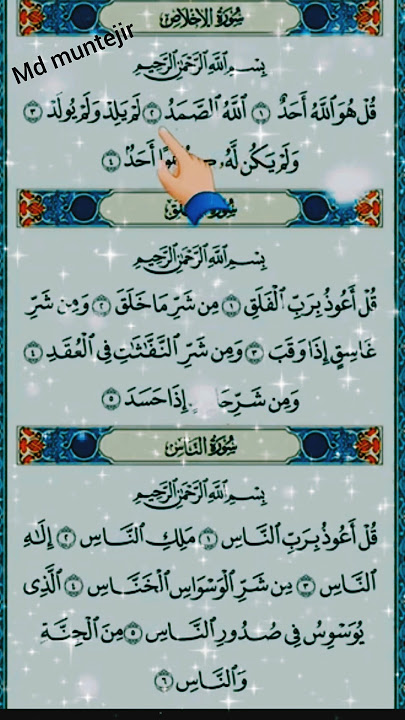 سُورَةُ الإِخْلَاصِ
Md muntejir
بِسْمِ اللَّهِ الرَّحْمَٰنِ الرَّحِيمِ
قُلْ هُوَ اللَّهُ أَحَدٌ ١ اللَّهُ الصَّمَدُ ٢ لَمْ يَلِدْ وَلَمْ يُولَدْ ٣
وَلَمْ يَكُن لَّهُ أَحَدٌ ٤
سُورَةُ
بِسْمِ اللَّهِ الرَّحْمَٰنِ الرَّحِيمِ
قُلْ أَعُوذُ بِرَبِّ الْفَلَقِ ١ مِن شَرِّ مَا خَلَقَ ٢ وَمِن شَرِّ
غَاسِقٍ إِذَا وَقَبَ ٣ وَمِن شَرِّ النَّفَّٰثَٰتِ فِي الْعُقَدِ ٤
وَمِن شَرِّ إِذَا حَسَدَ ٥
سُورَةُ النَّاسِ
بِسْمِ اللَّهِ الرَّحْمَٰنِ الرَّحِيمِ
قُلْ أَعُوذُ بِرَبِّ النَّاسِ ١ مَلِكِ النَّاسِ ٢ إِلَٰهِ
النَّاسِ ٣ مِن شَرِّ الْوَسْوَاسِ الْخَنَّاسِ ٤ الَّذِي
يُوَسْوِسُ فِي صُدُورِ النَّاسِ ٥ مِنَ الْجِنَّةِ
وَالنَّاسِ ٦